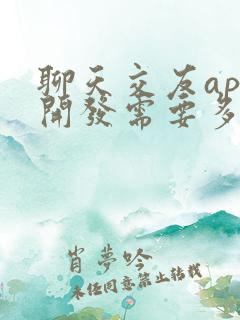 聊天交友ap
開發需要多
肖夢吟
未經同意禁止轉載